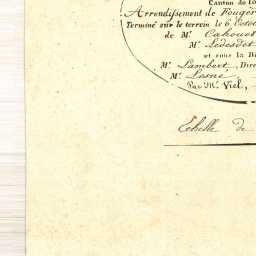 Canton de
Arrondissement de Fougèr
Terminé sur le terrein le 6 Octob
de Mr. Cahouet
Mr. Ledesdet
et sous la Di
Mr. Lambert, Dire
Mr. Lesné
Par Mr. Viel,
Echelle de